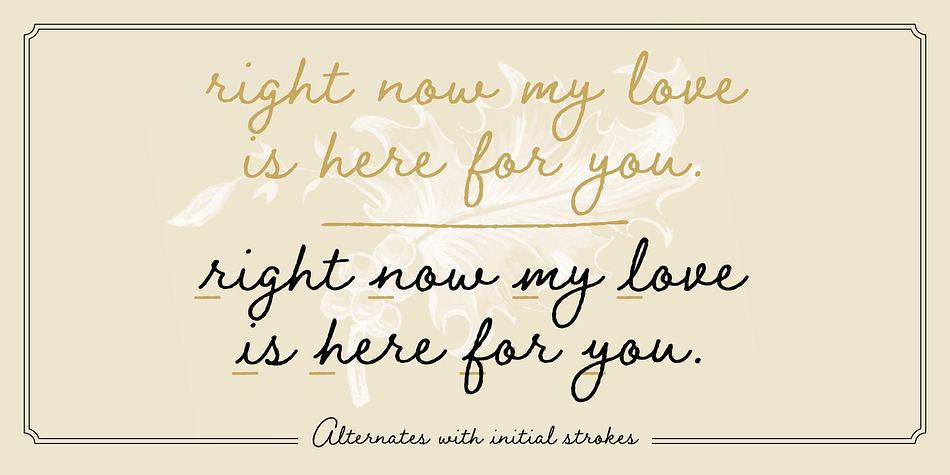 right now my love
is here for you.
right now my love
is here for you.
Alternates with initial strokes